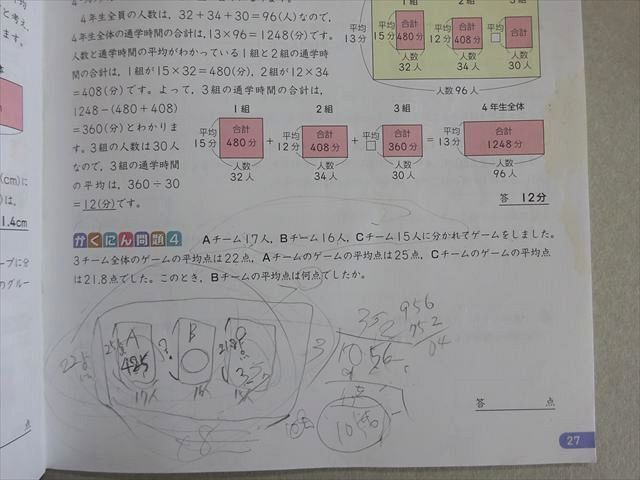 4年生全員の人数は，32＋34＋30＝96(人)なので，
4年生全体の通学時間の合計は，13×96＝1248(分)です。
人数と通学時間の平均がわかっている1組と2組の通学時
間の合計は，1組が15×32＝480(分)，2組が12×34
＝408(分)です。よって，3組の通学時間の合計は，
1248－(480＋408)
＝360(分)とわかりま
す。3組の人数は30人
なので，3組の通学時間
の平均は，360÷30
＝12(分)です。
平均 13分
平均 15分 合計 480分 人数 32人
平均 12分 合計 408分 人数 34人
平均 □ 合計 人数 30人
人数 96人
1組 2組 3組 4年生全体
平均 15分 合計 480分 ＋ 平均 12分 合計 408分 ＋ 平均 □ 合計 360分 ＝ 平均 13分 合計 1248分
人数 32人 人数 34人 人数 30人 人数 96人
答 12分
かくにん問題4 Aチーム17人，Bチーム16人，Cチーム15人に分かれてゲームをしました。
3チーム全体のゲームの平均点は22点，Aチームのゲームの平均点は25点，Cチームのゲームの平均点
は21.8点でした。このとき，Bチームの平均点は何点でしたか。
A B
425
17人 16人
352
956
1056
答 点
27
(cm)に
は，
1.4cm
ープに分
のグルー
点